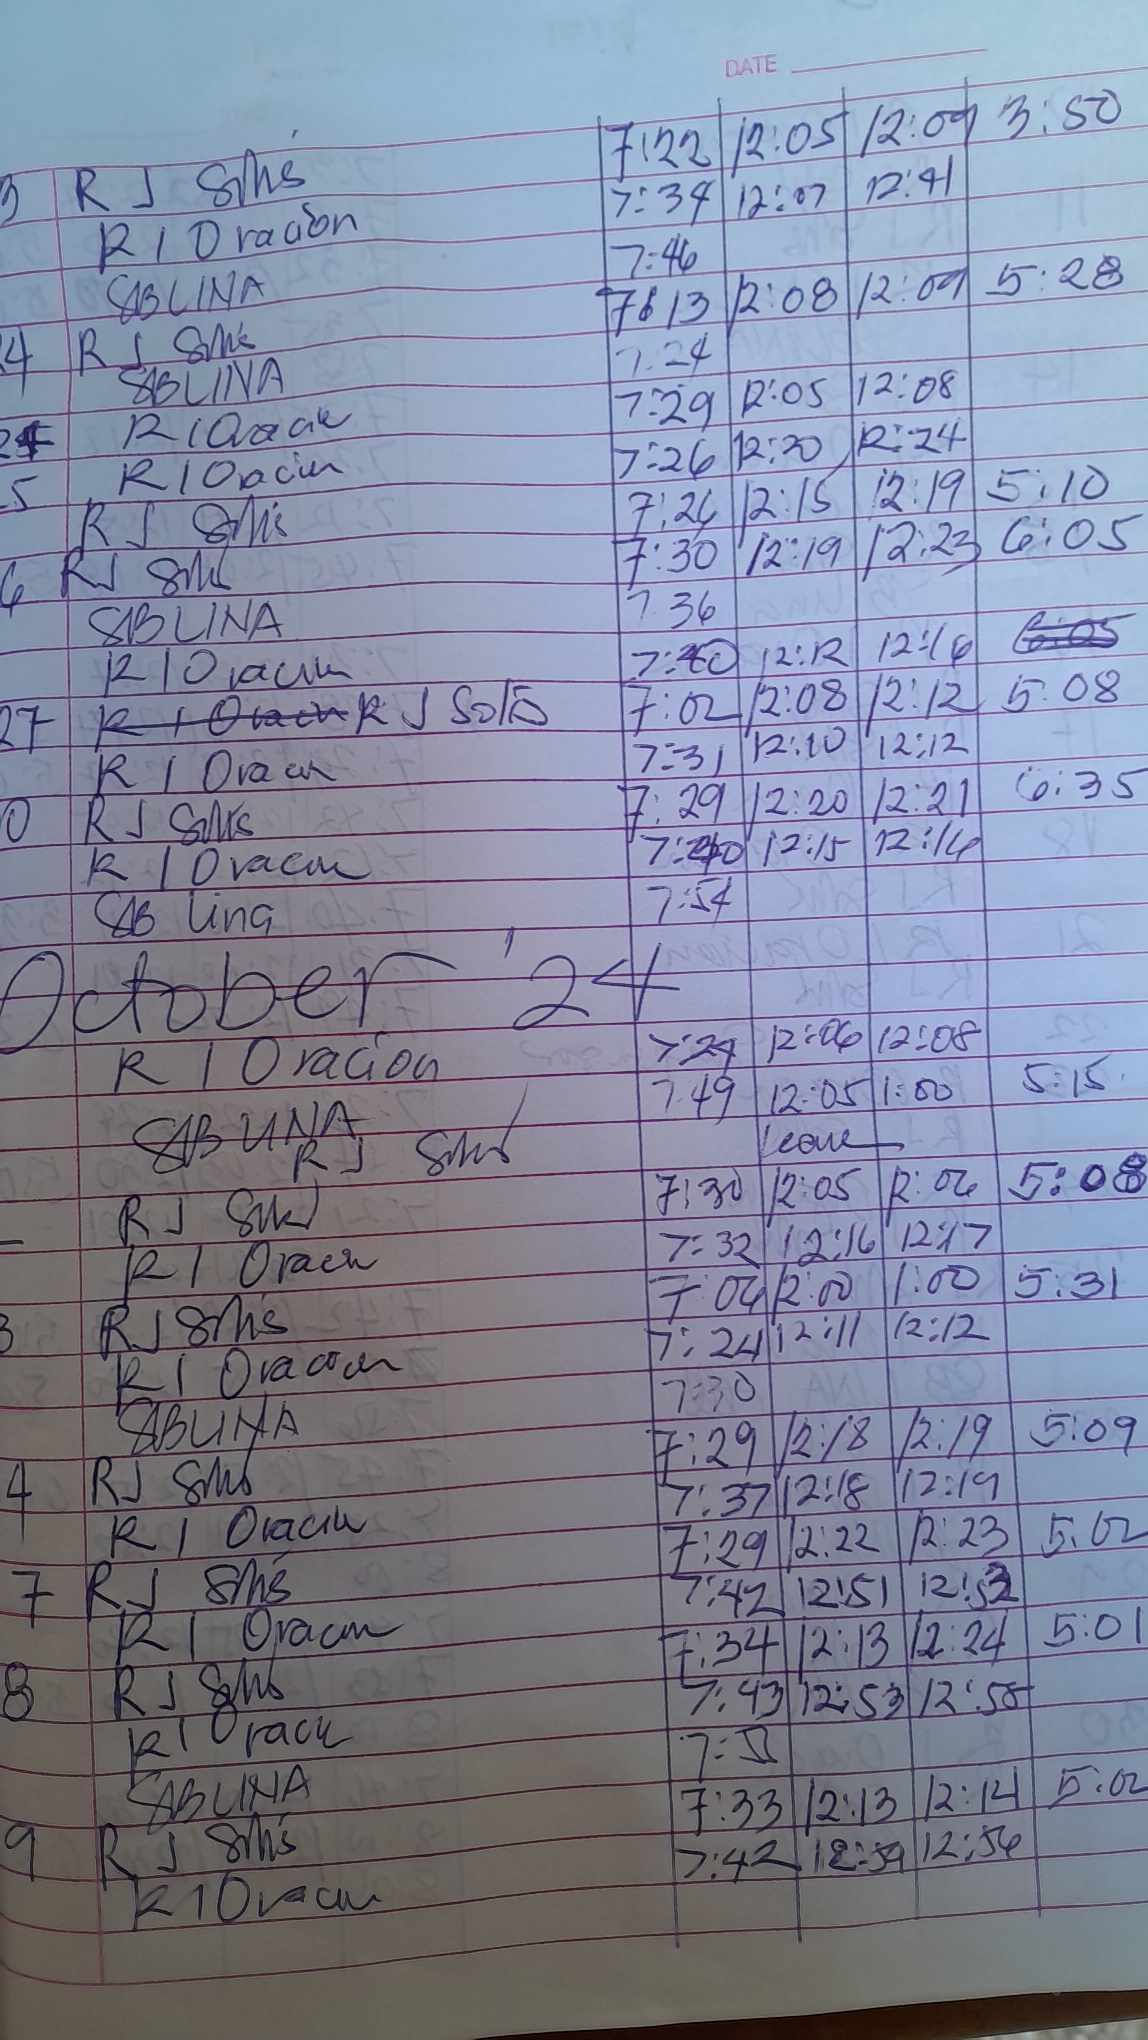 DATE
3 R J Solis 7:22 12:05 12:09 3:50
R I Oracion 7:34 12:07 12:41
SABLINA 7:46
24 R J Solis 7:13 12:08 12:09 5:28
SABLINA 7:24
R I Oracion 7:29 12:05 12:08
25 R I Oracion 7:26 12:20 12:24
R J Solis 7:26 12:15 12:19 5:10
6 RJ Solis 7:30 12:19 12:23 6:05
SABLINA 7:36
R I Oracion 7:40 12:12 12:16 6:05
27 R I Oracion R J Solis 7:02 12:08 12:12 5:08
R I Oracion 7:31 12:10 12:12
0 R J Solis 7:29 12:20 12:21 6:35
R I Oracion 12:15 12:16
SAB Lina 7:54
October '24
R I Oracion 12:06 12:08
SABLINA 7:49 12:05 1:00 5:15
R J Solis leave
R J Solis 7:30 12:05 12:06 5:08
R I Oracion 7:32 12:16 12:17
3 R J Solis 7:06 12:00 1:00 5:31
R I Oracion 7:24 12:11 12:12
SABLINA 7:30
4 RJ Solis 7:29 12:18 12:19 5:09
R I Oracion 7:37 12:18 12:19
7 R J Solis 7:29 12:22 12:23 5:02
R I Oracion 7:42 12:51
8 R J Solis 7:34 12:13 12:24 5:01
R I Oracion 7:43 12:53 12:58
SABLINA
9 R J Solis 7:33 12:13 12:14 5:02
R I Oracion 7:42 12:56